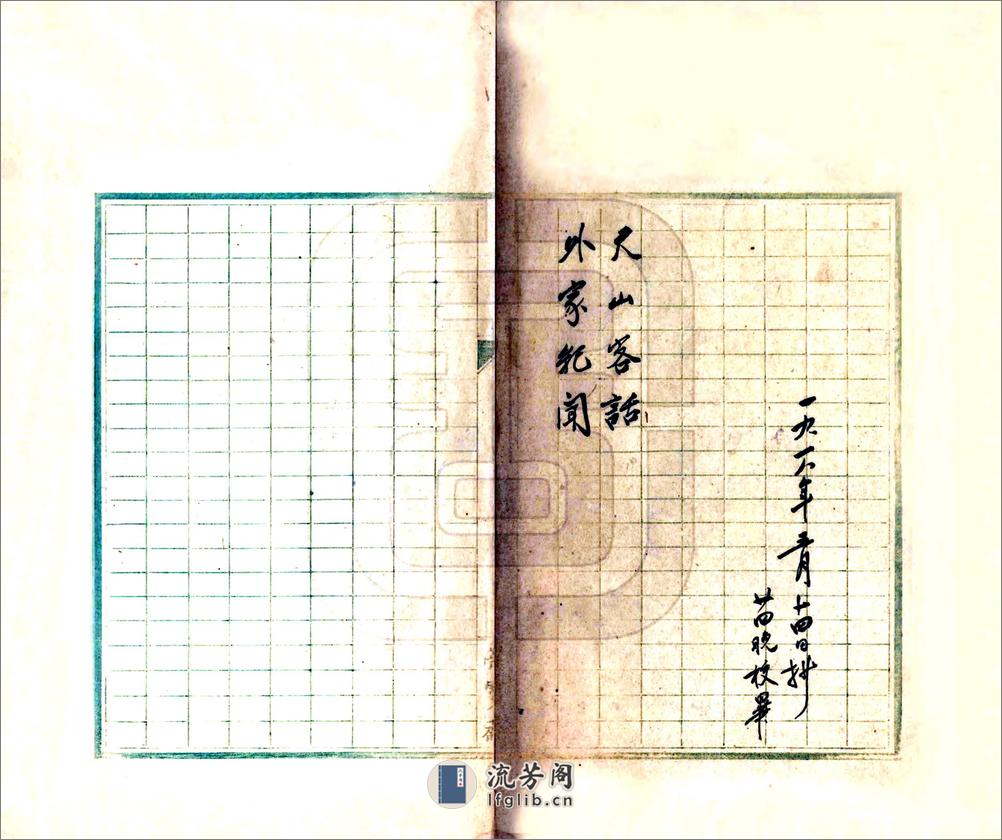 一九年月十四日抄
廿四晚校畢
天山客話
外家紀聞
流芳阁
lfglib.cn